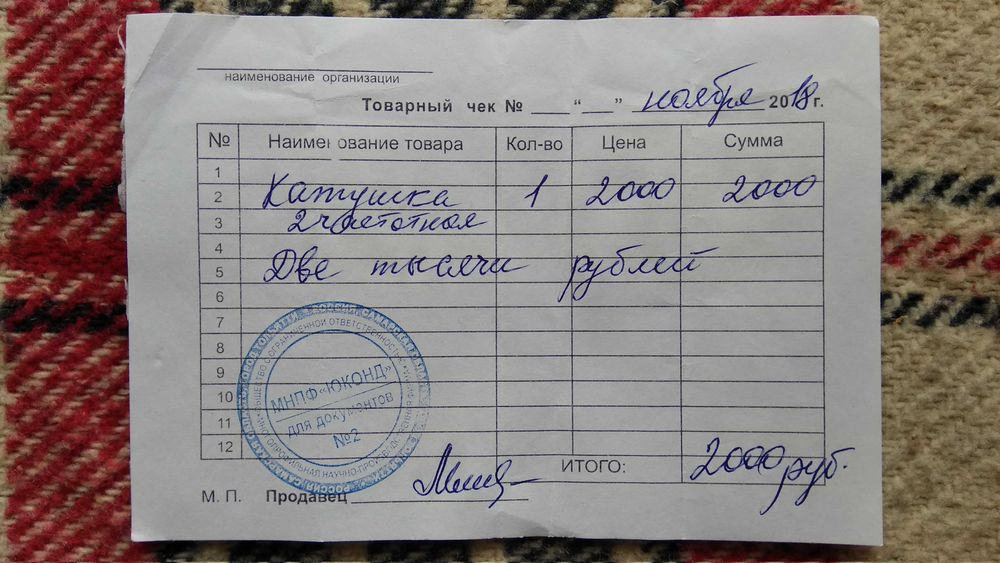 наименование организации
Товарный чек № ___ “ __ ” ноября 2018 г.
№ Наименование товара Кол-во Цена Сумма
1
2 Катушка 1 2000 2000
3 2 частотная
4
5 Две тысячи рублей
6
7
8
9
10
11
12
ИТОГО: 2000 руб.
М. П. Продавец
МНПФ «ЮКОНД»
для документов
№2
ОБЩЕСТВО С ОГРАНИЧЕННОЙ ОТВЕТСТВЕННОСТЬЮ